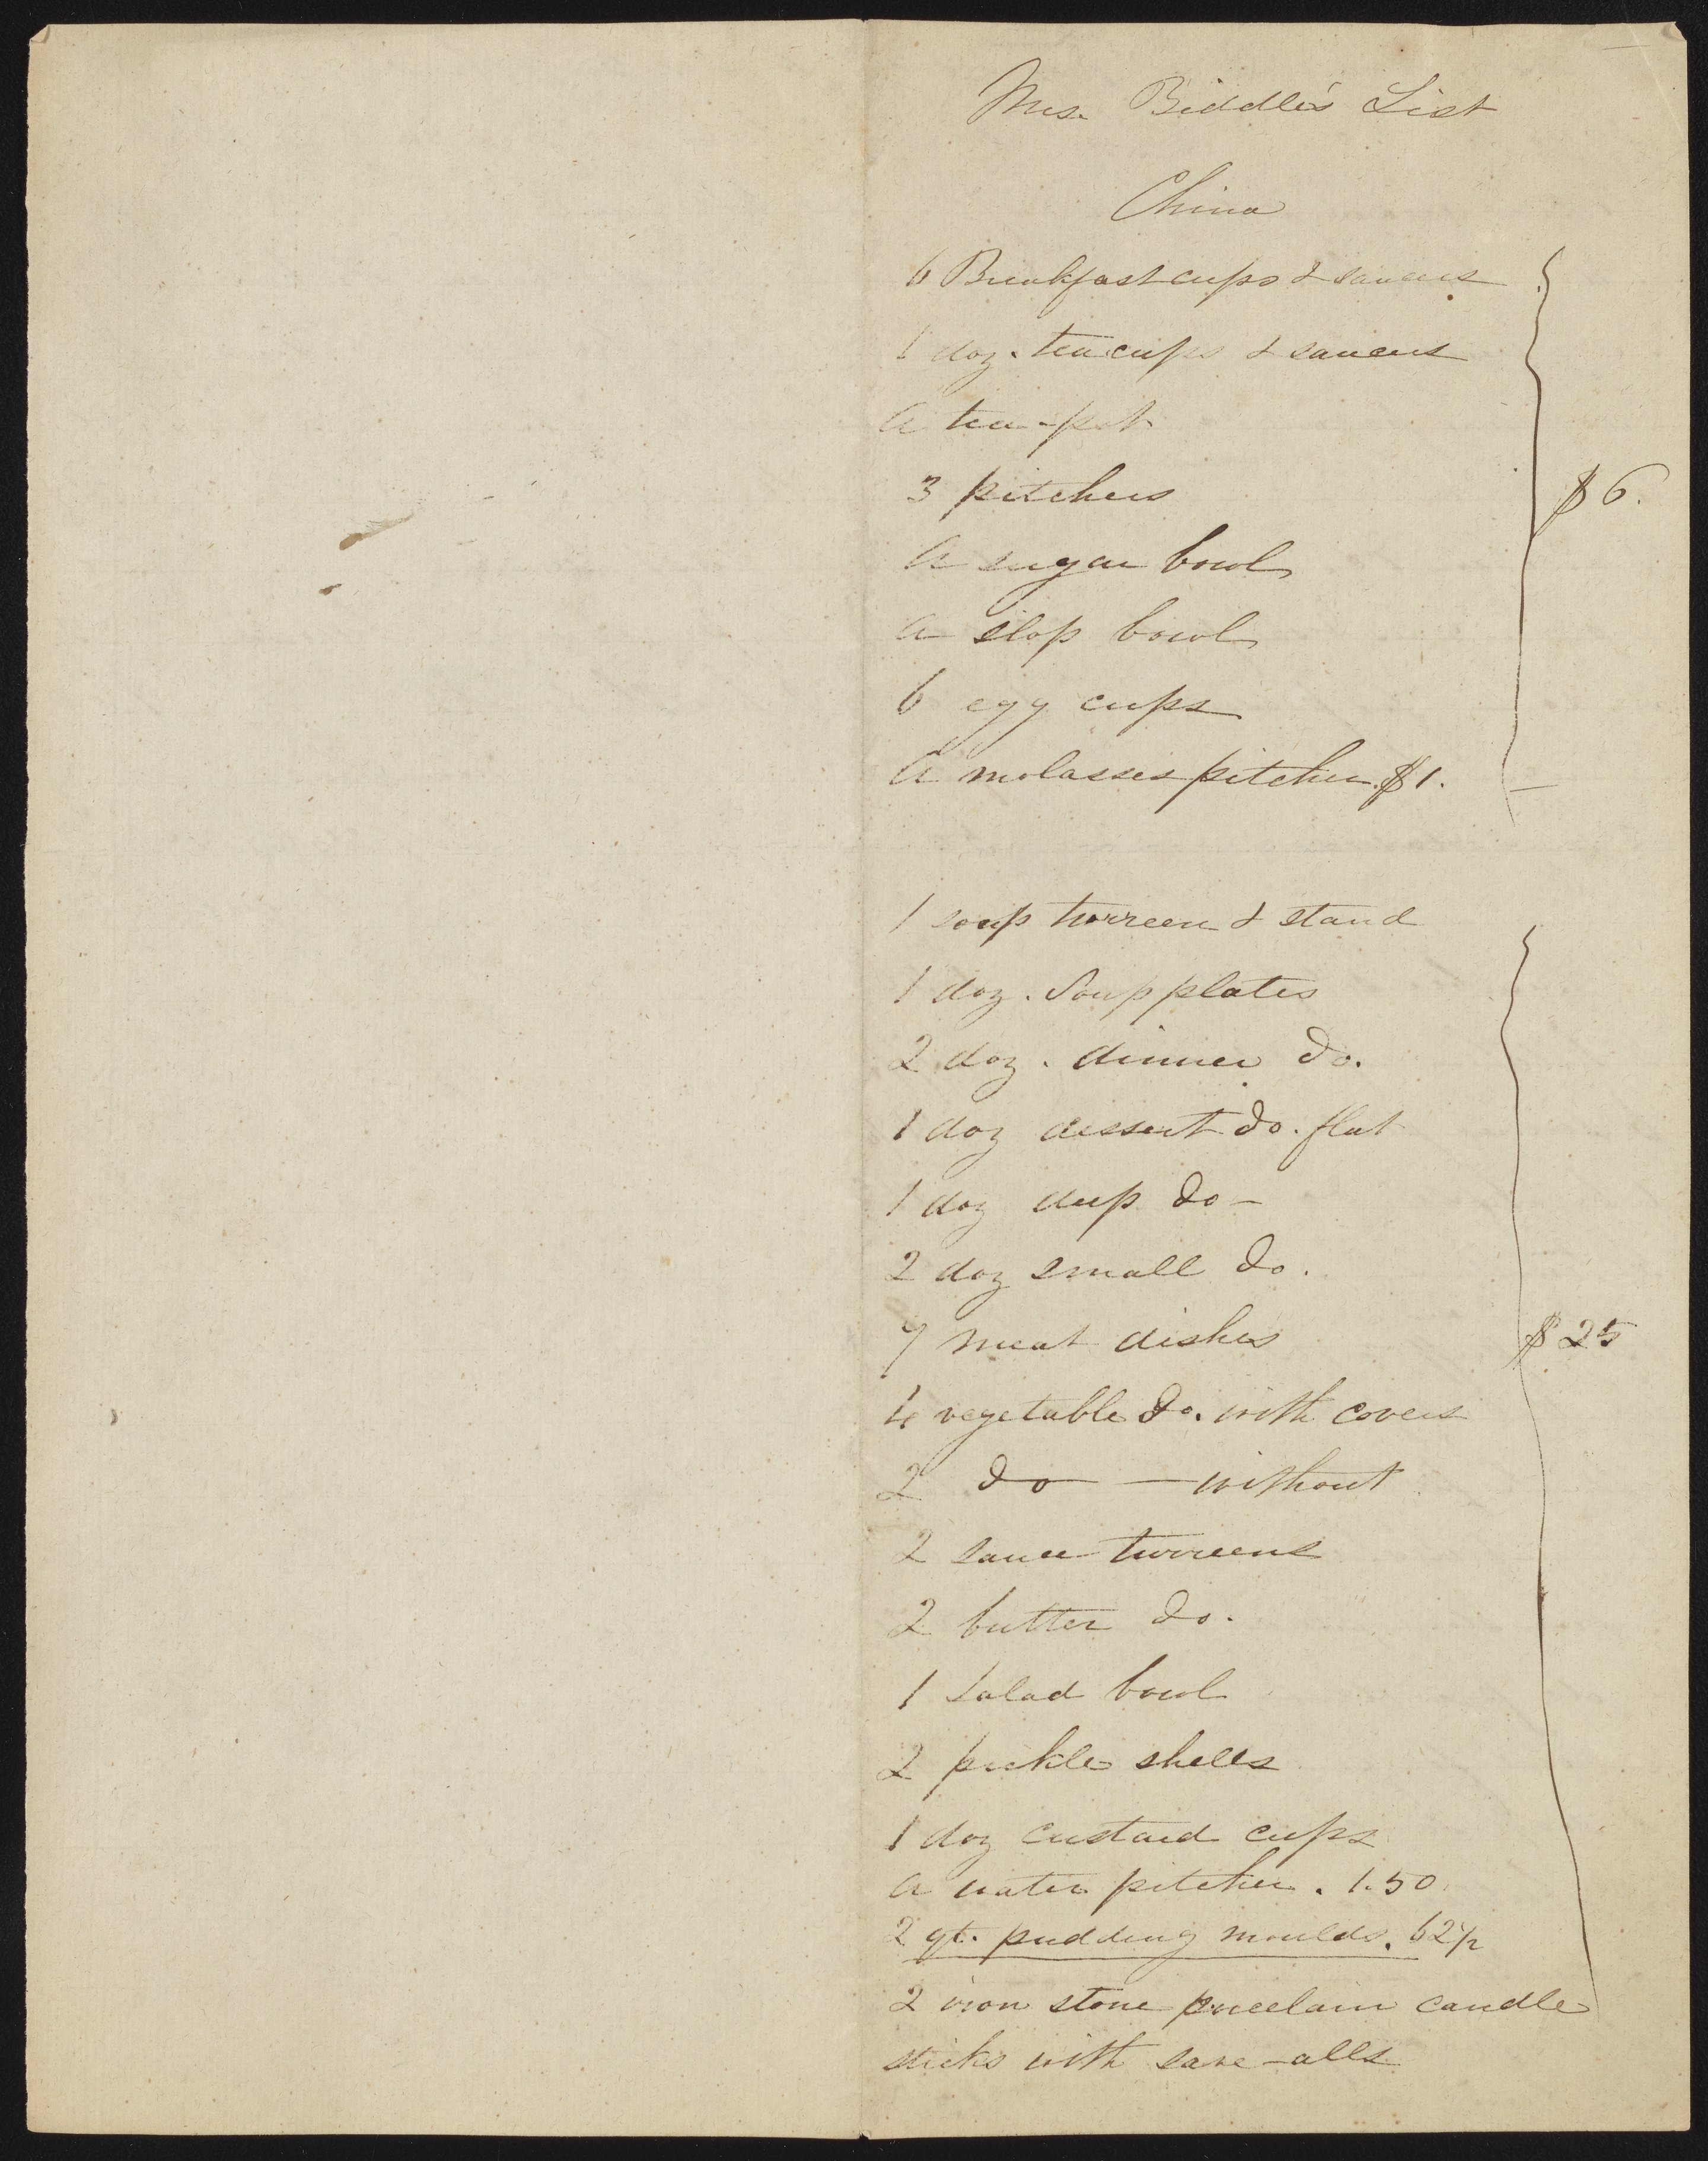 Mrs. Biddle's List
China
6 Breakfast cups & saucers
1 doz. tea cups & saucers
A tea-pot
3 pitchers
$6.
A sugar bowl
A slop bowl
6 egg cups
A molasses pitcher. $1.
1 soup turreen & stand
1 doz. Soup plates
2 doz. dinner do.
1 doz dessert do. flat
1 doz deep do -
2 doz small do.
7 meat dishes
$25
4 vegetable do. with covers
2 do — without
2 sauce turreens
2 butter do.
1 Salad bowl
2 pickle shells
1 doz custard cups
A water pitcher. 1.50
2 qt. pudding moulds. 62½
2 iron stone porcelain candle
sticks with save-alls